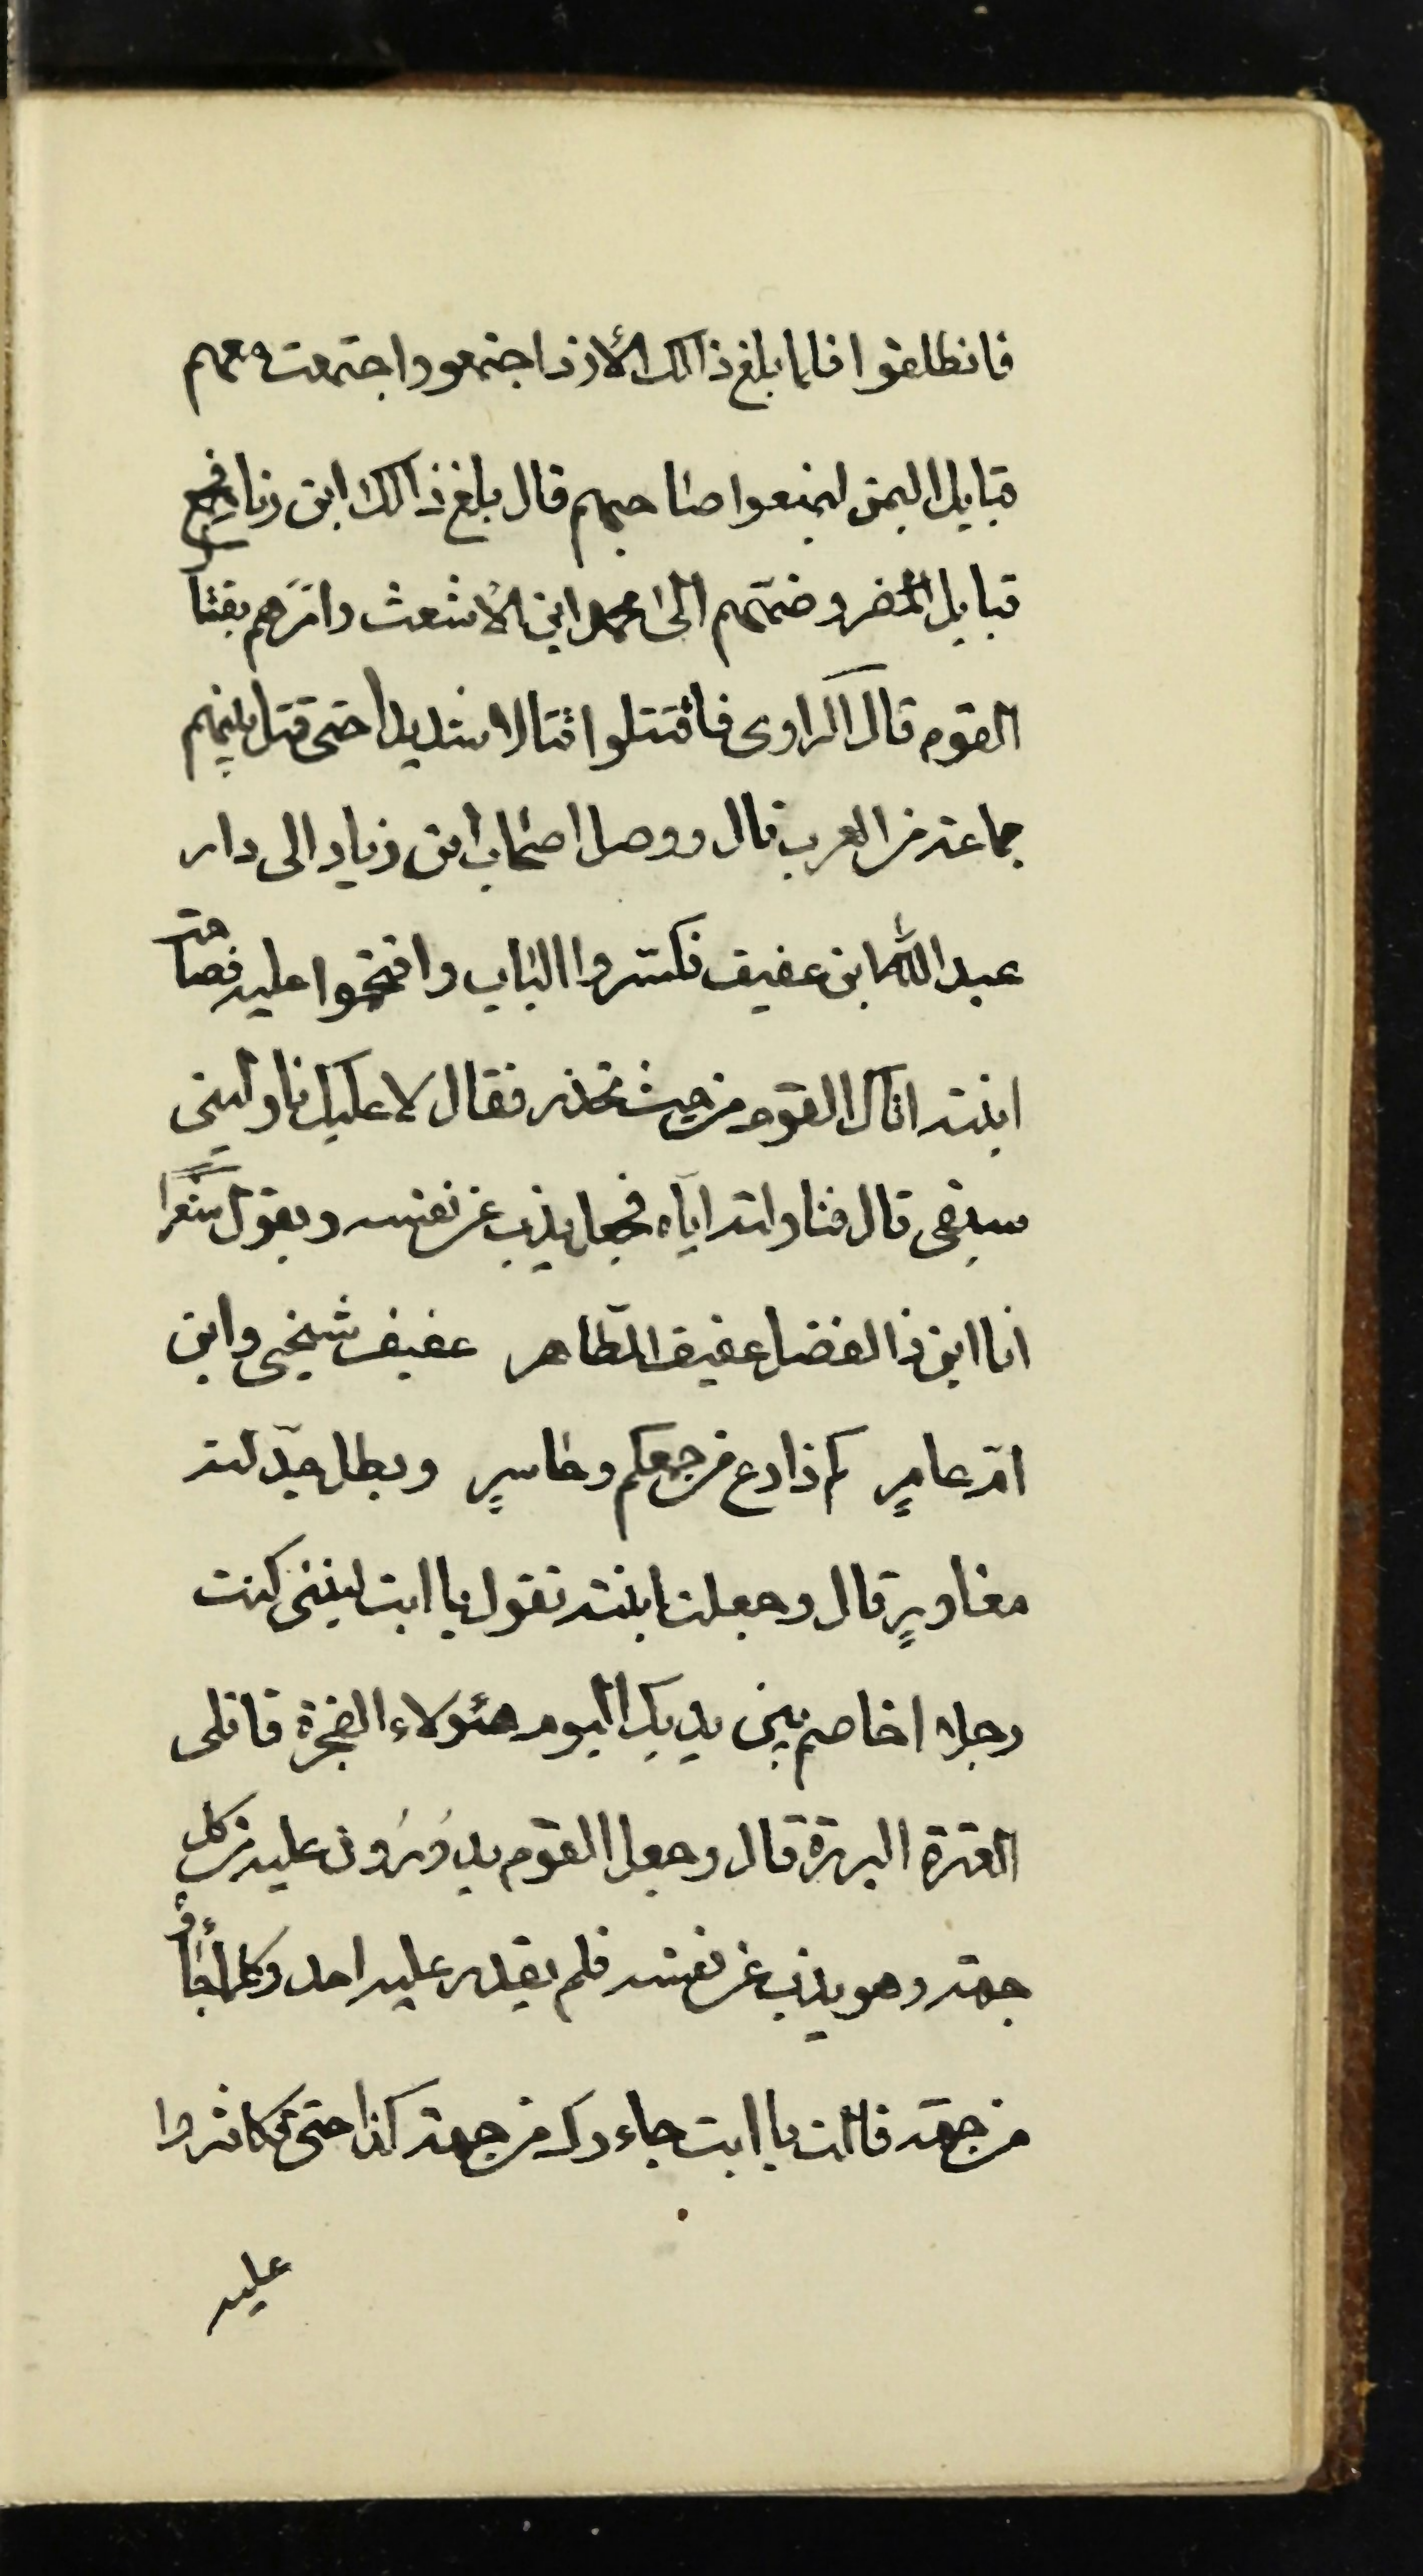 فانطلقوا فلما بلغ ذالك الأزد اجتمعو واجتمعت معهم
قبايل اليمن ليمنعوا صاحبهم قال بلغ ذالك ابن زياد فجمع
قبايل المضر وضمّهم الى محمد ابن الأشعث وامرهم بقتال
القوم قال الراوى فاقتتلوا قتالا شديدا حتى قتل بينهم
جماعة من العرب قال ووصل اصحاب ابن زياد الى دار
عبد الله ابن عفيف فكسروا الباب واقتحموا عليه فصاحت
ابنته اتاك القوم من حيث تحذر فقال لا عليك ناوليني
سيفى قال فناولته اياه فجعل يذب عن نفسه ويقول شعرا
انا ابن ذا الفضل عفيف الطّاهر عفيف شيخي وابن
امّ عامرٍ كم ذارع من جمعكم وحاسرٍ وبطل جدّلته
مغاويرٍ قال وجعلت ابنته تقول يا ابت ليتنى كنت
رجلا اخاصم بين يديك اليوم هئولاء الفجرة قاتلى
العترة البررة قال وجعل القوم يدورون عليه من كل
جهة وهو يذب عن نفسه فلم يقدر عليه احد وكلما جاؤ
من جهة قالت يا ابت جاءوك من جهة كذا حتى تكاثروا
عليه